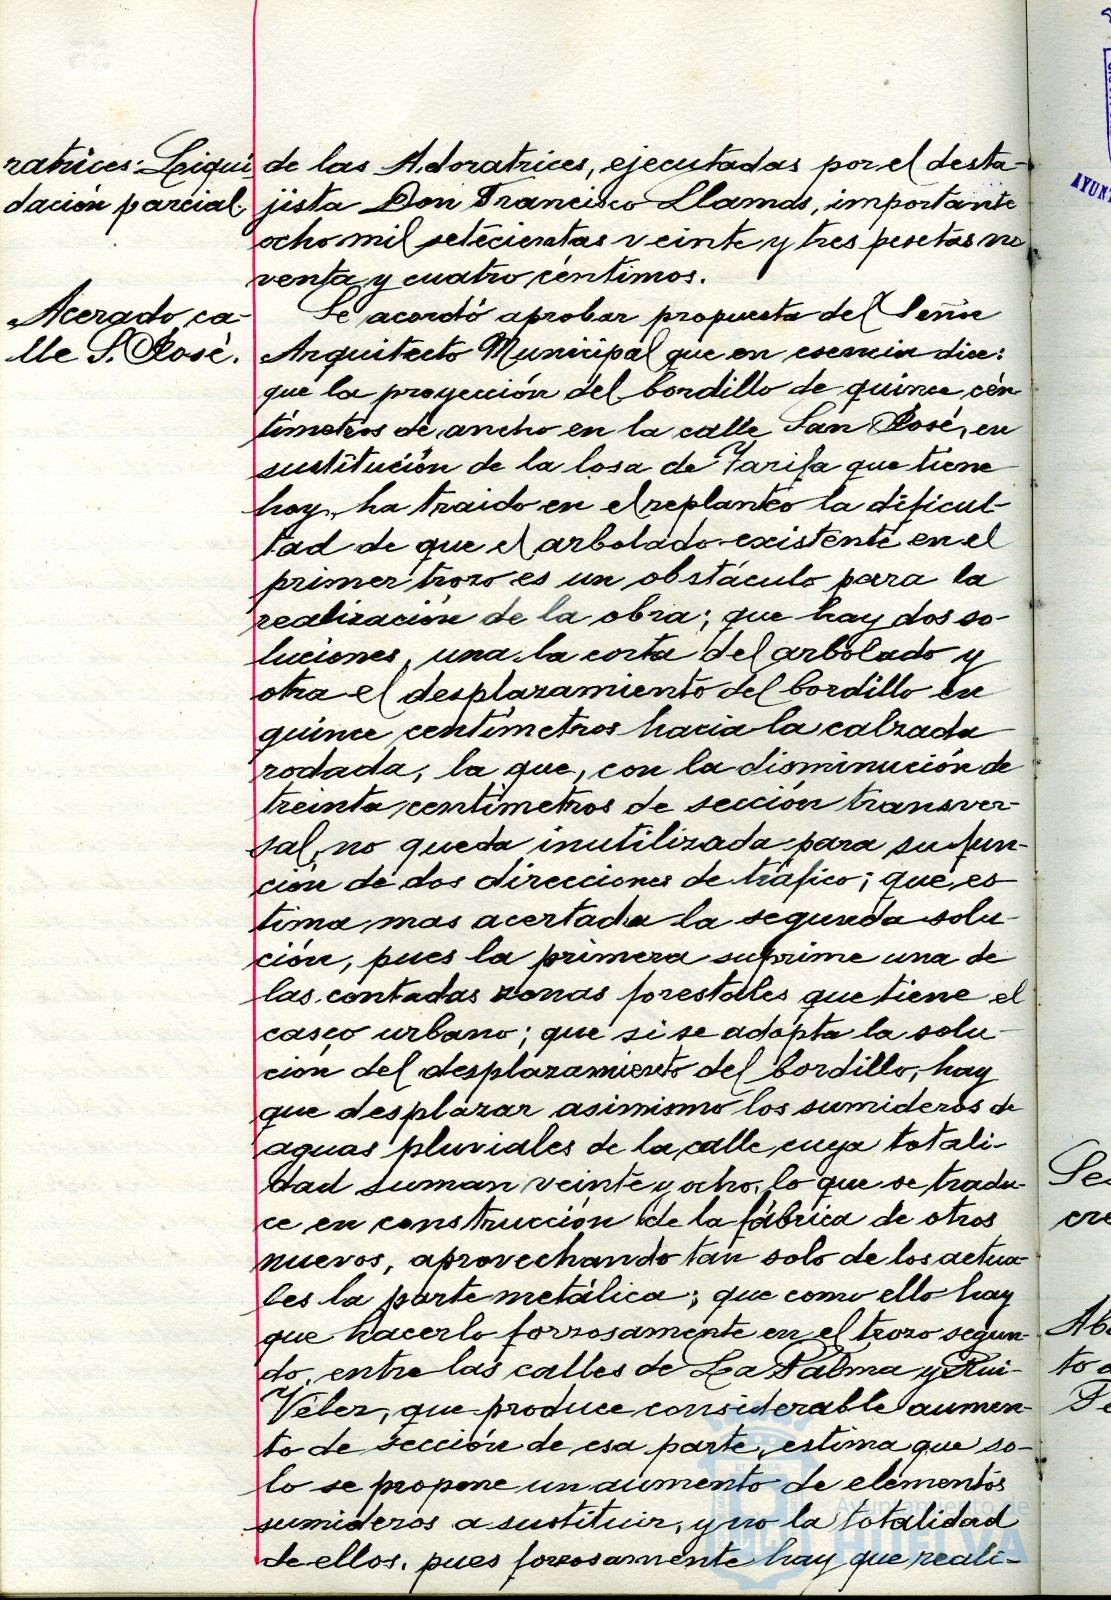 ratrices: Liqui
dación parcial.
de las Adoratrices, ejecutadas por el desta-
jista Don Francisco Llamas, importante
ocho mil setecientas veinte y tres pesetas no
venta y cuatro céntimos.
Acerado ca-
lle S. José.
Se acordó aprobar propuesta del Señor
Arquitecto Municipal que en esencia dice:
que la proyección del bordillo de quince cén
tímetros de ancho en la calle San José, en
sustitución de la losa de Tarifa que tiene
hoy, ha traido en el replanteo la dificul-
tad de que el arbolado existente en el
primer trozo es un obstáculo para la
realización de la obra; que hay dos so-
luciones, una la corta del arbolado y
otra el desplazamiento del bordillo en
quince centímetros hacia la calzada
rodada, la que, con la disminución de
treinta centímetros de sección transver-
sal, no queda inutilizada para su fun-
ción de dos direcciones de tráfico; que es
tima mas acertada la segunda solu-
ción, pues la primera suprime una de
las contadas zonas forestales que tiene el
casco urbano; que si se adopta la solu-
ción del desplazamiento del bordillo, hay
que desplazar asimismo los sumideros de
aguas pluviales de la calle cuya totali-
dad suman veinte y ocho, lo que se tradu-
ce en construcción de la fábrica de otros
nuevos, aprovechando tan solo de los actua
les la parte metálica; que como ello hay
que hacerlo forzosamente en el trozo segun-
do, entre las calles de La Palma y Rui-
Vélez, que produce considerable aumen-
to de sección de esa parte, estima que so-
lo se propone un aumento de elementos
sumideros a sustituir, y no la totalidad
de ellos, pues forzosamente hay que reali-
Ayuntamiento de
HUELVA